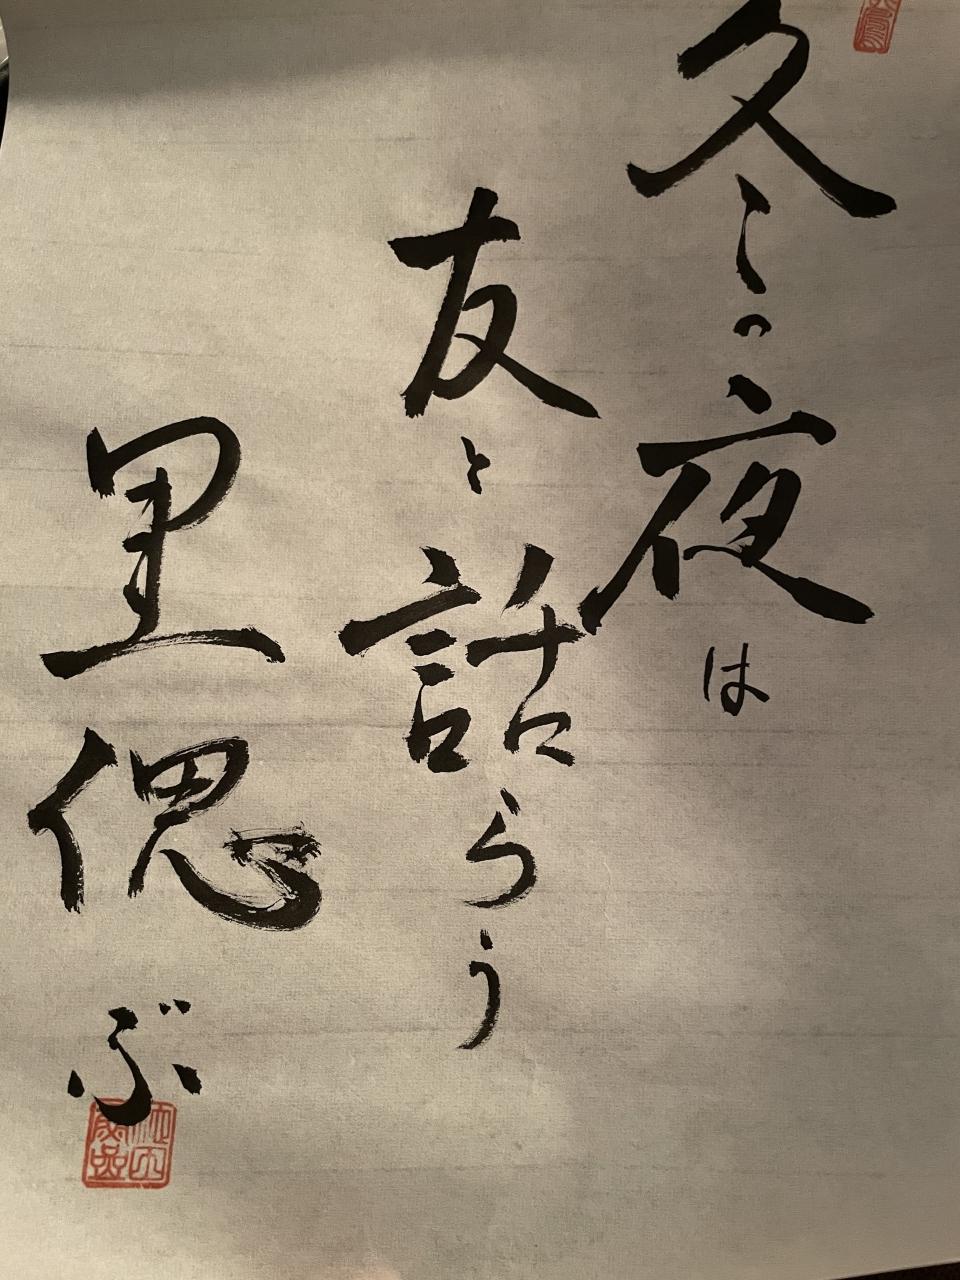 冬の夜は
友と話らう
里偲ぶ